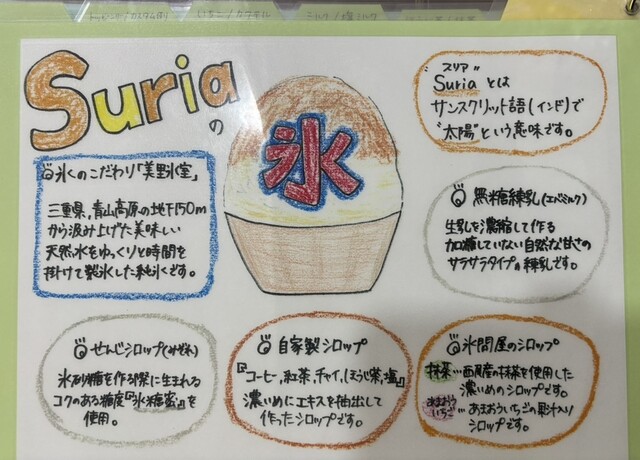 Suria
の
氷
"スリア"
Suriaとは
サンスクリット語(インド)で
"太陽"という意味です。
氷へのこだわり「美野氷室」
三重県、青山高原の地下150m
から汲み上げた美味しい
天然水をゆっくりと時間を
掛けて製氷した純氷です。
無糖練乳(エバミルク)
生乳を濃縮して作る
加糖していない自然な甘さの
サラサラタイプの練乳です。
せんじシロップ(みぞれ)
氷砂糖を作る際に生まれる
コクのある糖度『氷糖蜜』を
使用。
自家製シロップ
『コーヒー、紅茶、チャイ、ほうじ茶、塩』
濃いめにエキスを抽出して
作ったシロップです。
氷問屋のシロップ
抹茶…西尾産の抹茶を使用した
濃いめのシロップです。
あまおう
いちご…あまおういちごの果汁入り
シロップです。